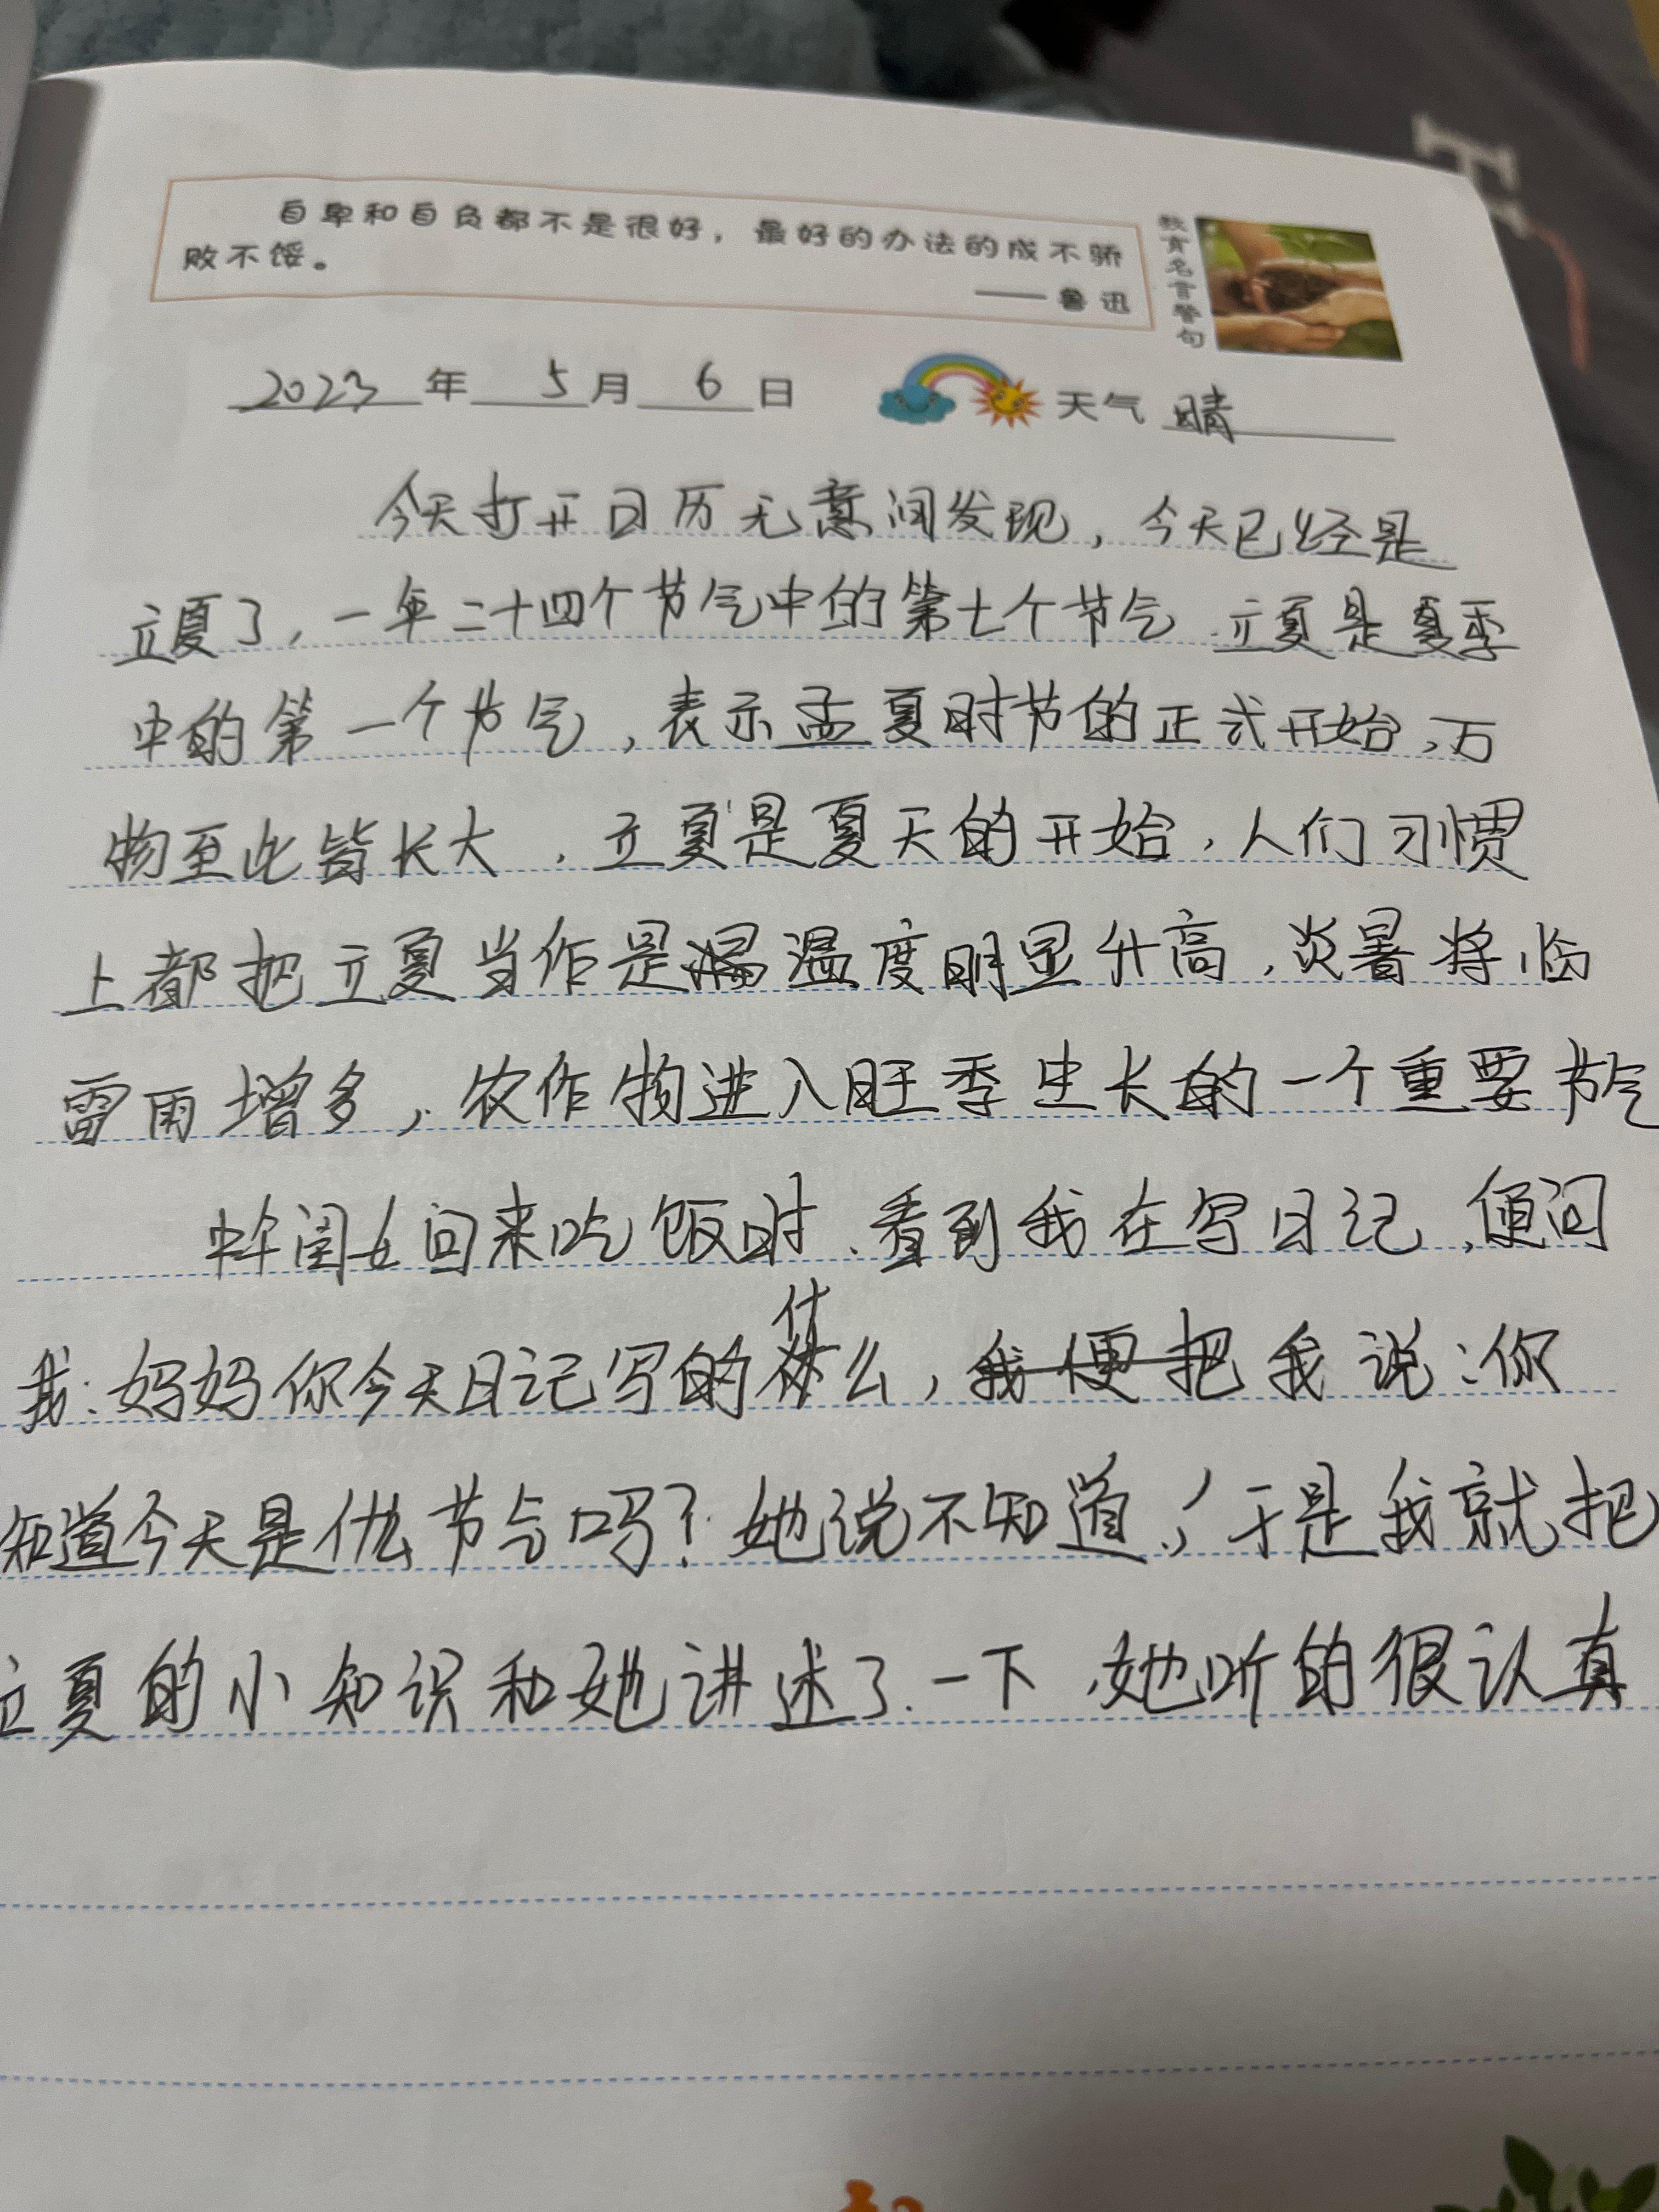 自卑和自负都不是很好，最好的办法的成不骄
败不馁。
——鲁迅
教育名言警句
2023年5月6日 天气 晴
今天打开日历无意间发现，今天已经是
立夏了，一年二十四个节气中的第七个节气.立夏是夏季
中的第一个节气，表示孟夏时节的正式开始，万
物至此皆长大，立夏是夏天的开始，人们习惯
上都把立夏当作是温度明显升高，炎暑将临
雷雨增多，农作物进入旺季生长的一个重要节气
中午闺女回来吃饭时、看到我在写日记，便问
我：妈妈你今天日记写的什么，我便把我说：你
知道今天是什么节气吗？她说不知道，于是我就把
立夏的小知识和她讲述了.一下，她听的很认真
H